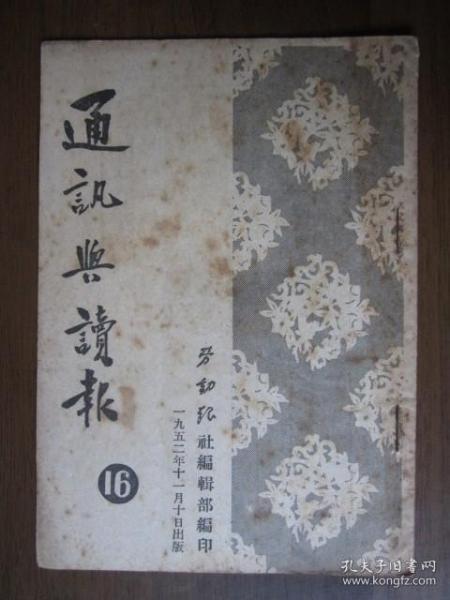 通訊與讀報
16
劳動报社編輯部編印
一九五二年十一月十日出版
孔夫子旧书网
www.kongfz.com